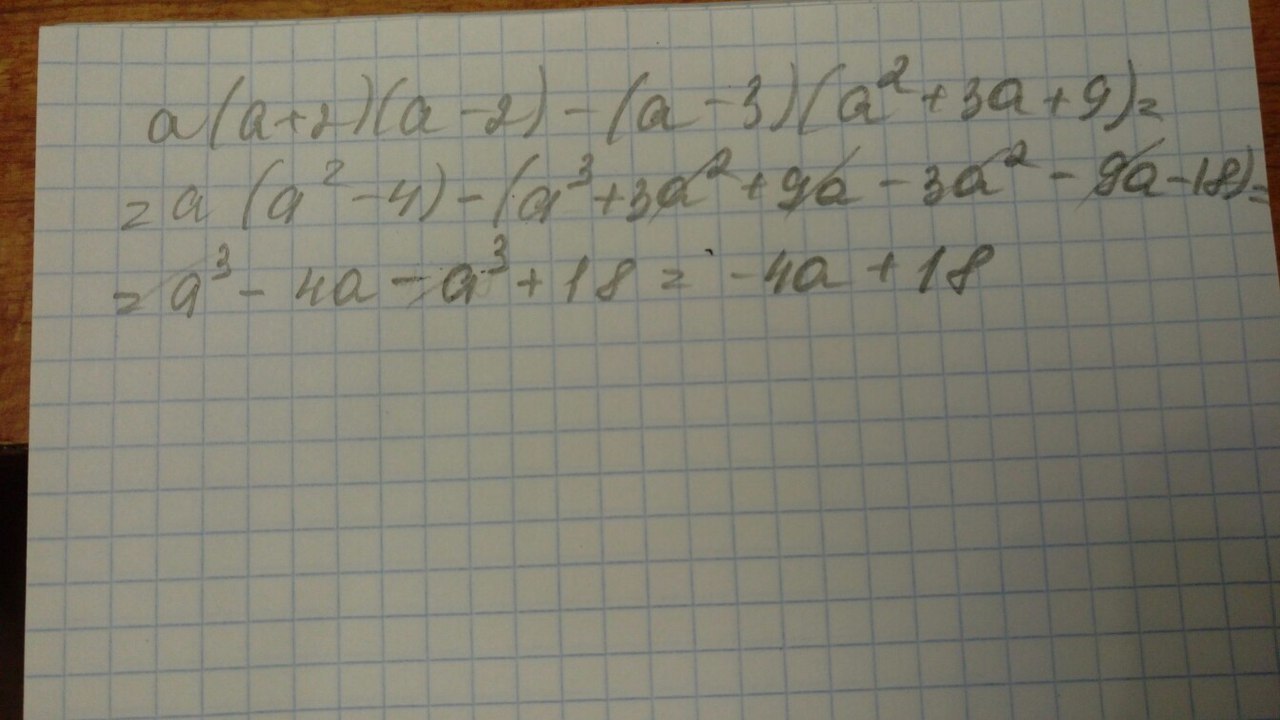 a(a+2)(a-2)-(a-3)(a²+3a+9)=
=a(a²-4)-(a³+3a²+9a-3a²-9a-18)=
=a³-4a-a³+18=-4a+18